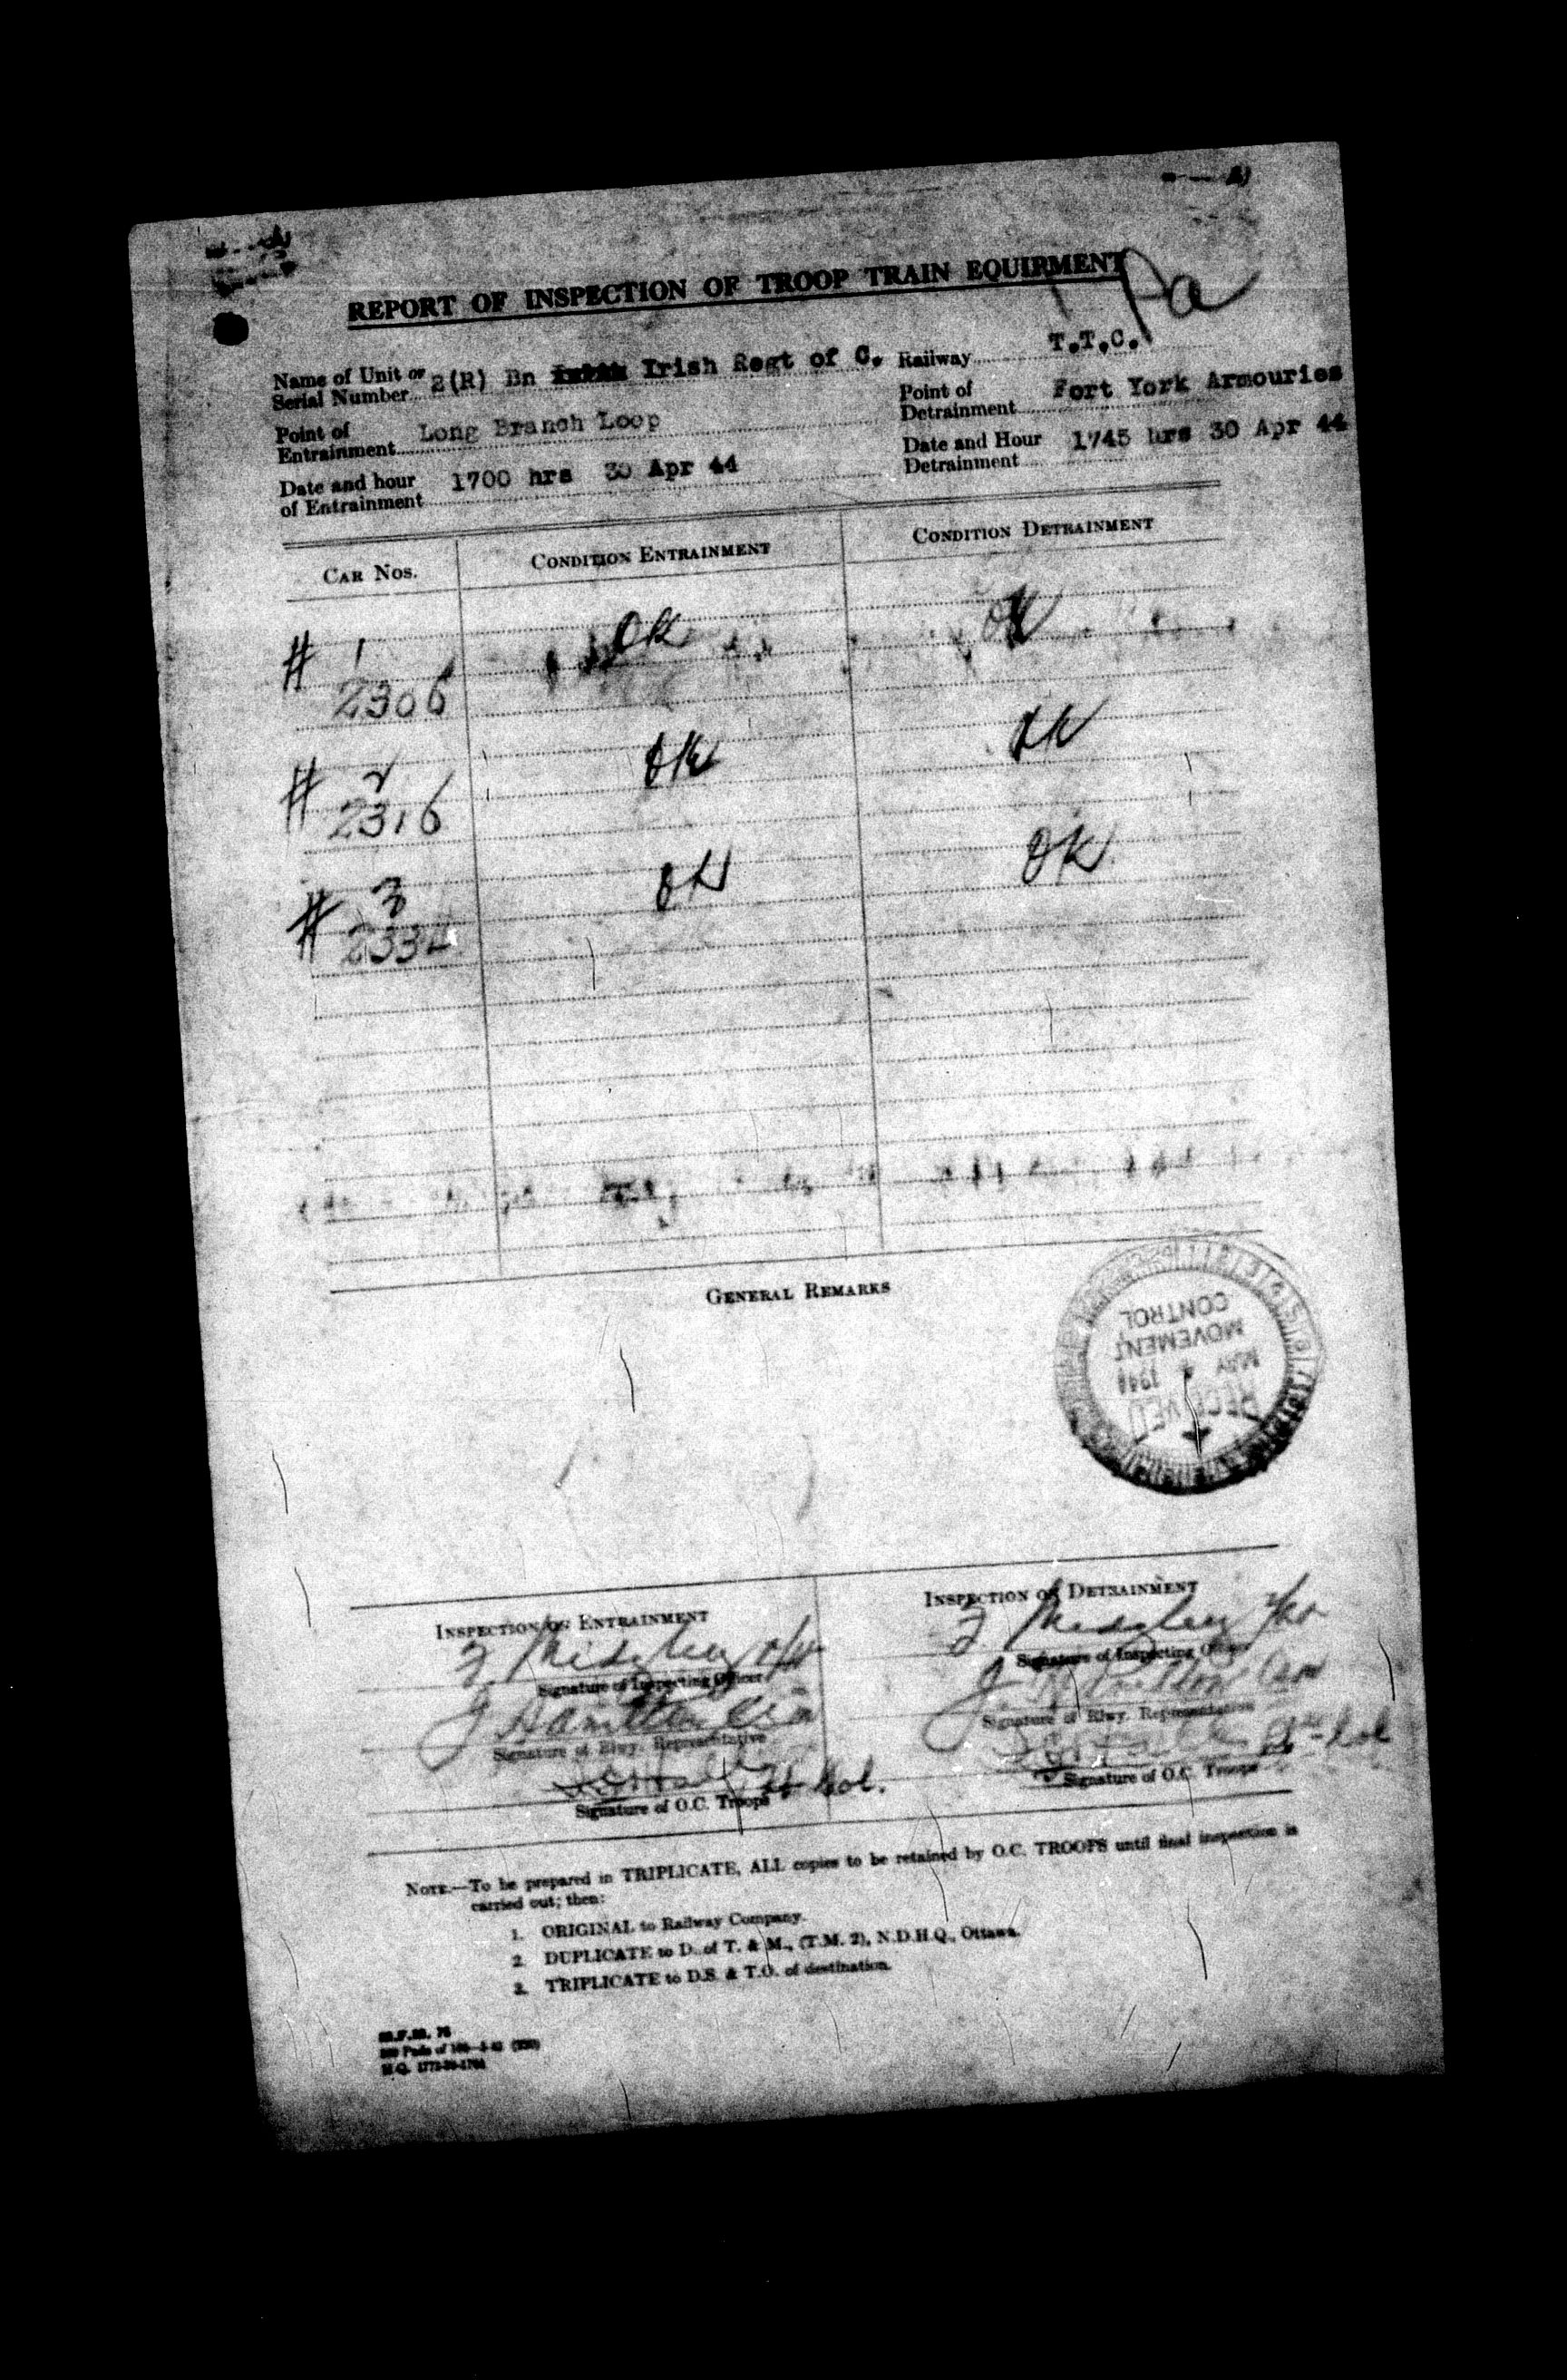 REPORT OF INSPECTION OF TROOP TRAIN EQUIPMENT
Pa
Name of Unit or Serial Number 2(R) Bn Irish Regt of C. Railway T.T.C.
Point of Entrainment Long Branch Loop Point of Detrainment Fort York Armouries
Date and hour of Entrainment 1700 hrs 30 Apr 44 Date and Hour Detrainment 1745 hrs 30 Apr 44
CAR NOS. CONDITION ENTRAINMENT CONDITION DETRAINMENT
# 1 OK OK
2306
# 2 OK OK
2316
# 3 OK OK
2334
GENERAL REMARKS
RECEIVED
MAY 4 1944
MOVEMENT
CONTROL
INSPECTION OF ENTRAINMENT INSPECTION OF DETRAINMENT
Signature of Inspecting Officer Signature of Inspecting Officer
J Hamilton J Hamilton
Signature of Rlwy. Representative Signature of Rlwy. Representative
Lt Col. Lt-Col
Signature of O.C. Troops Signature of O.C. Troops
NOTE.—To be prepared in TRIPLICATE, ALL copies to be retained by O.C. TROOPS until final inspection is
carried out; then:
1. ORIGINAL to Railway Company.
2. DUPLICATE to D. of T. & M., (T.M. 2), N.D.H.Q., Ottawa.
3. TRIPLICATE to D.S. & T.O. of destination.
M.F.M. 75